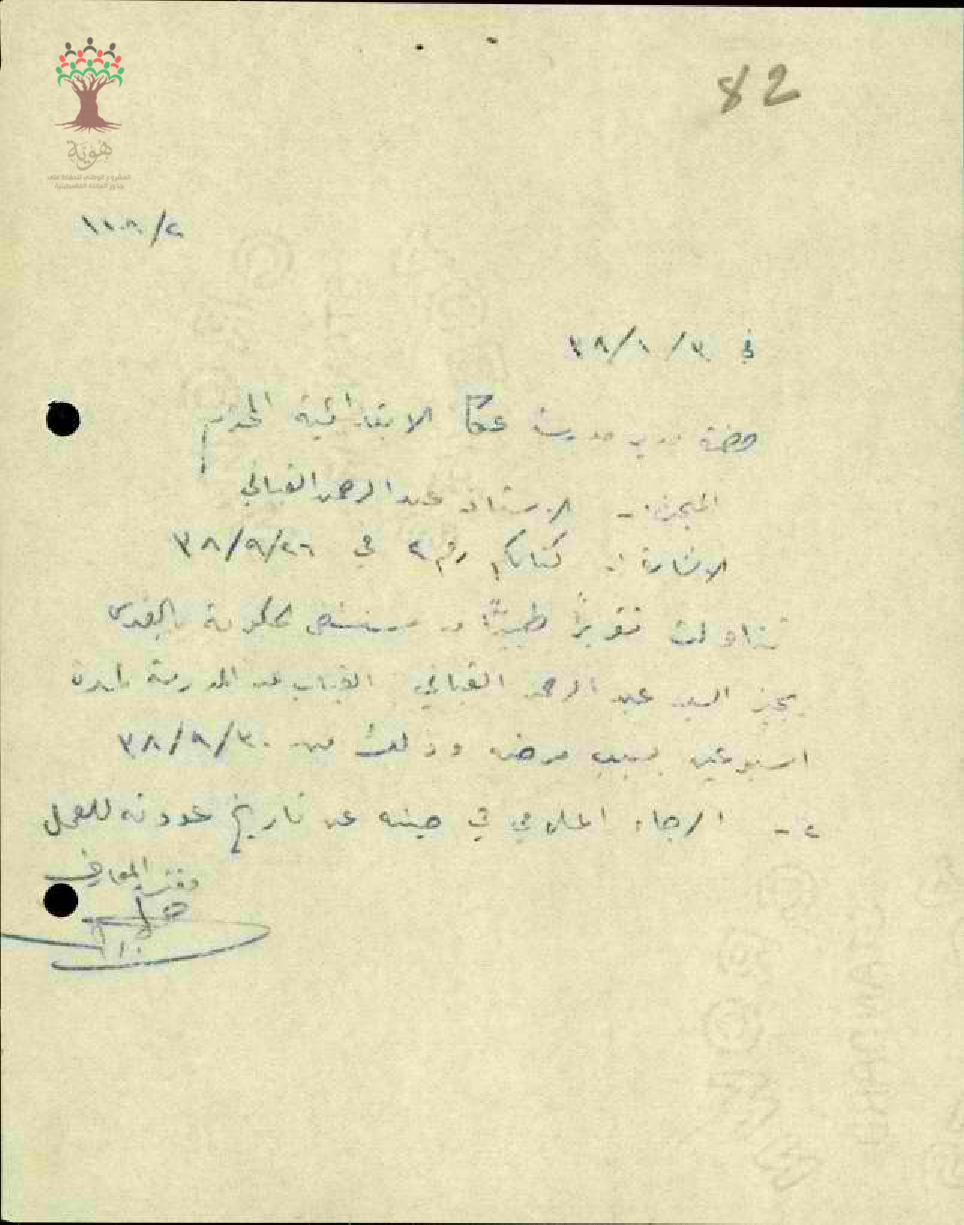 82
هوية
المشروع الوطني للحفاظ على
جذور العائلة الفلسطينية
١١٠٨/٢
في ٣/١٠/٣٨
حضرة مدير مدرسة عكا الابتدائية المحترم
الاستاذ عبد الرحمن القباني
الاشارة: كتابكم رقم ٢ في ٢٦/٩/٣٨
تناولت تقريراً طبياً من مستشفى الحكومة بالقدس
يجيز السيد عبد الرحمن القباني الغياب عن المدرسة لمدة
اسبوعين بسبب مرضه وذلك من ٣٠/٩/٣٨
٢- الرجاء اعلامي في حينه عن تاريخ عودته للعمل
مفتش المعارف